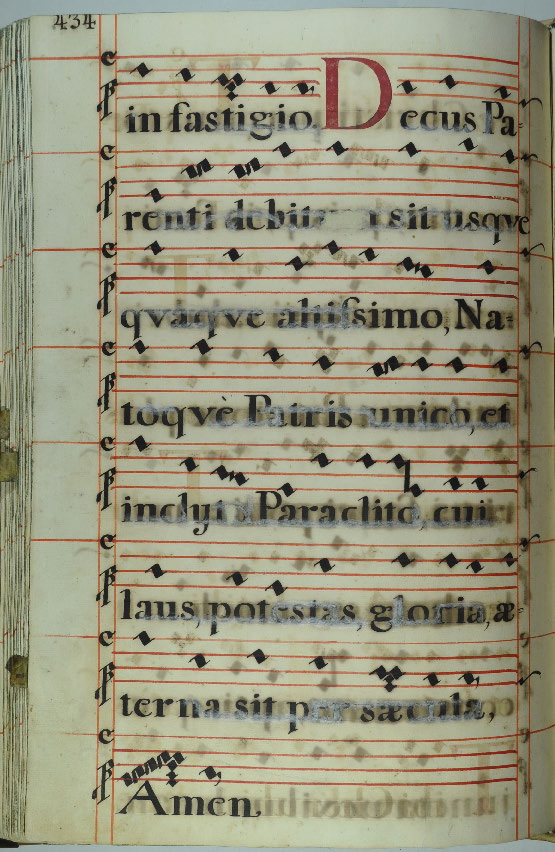 434
in fastigio. Decus Pa-
renti debitum sit usqve
qváqve altissimo, Na-
toqvè Patris unico, et
inclyto Paraclito, cui
laus, potestas, gloria, æ
terna sit per sæcula,
Amen.